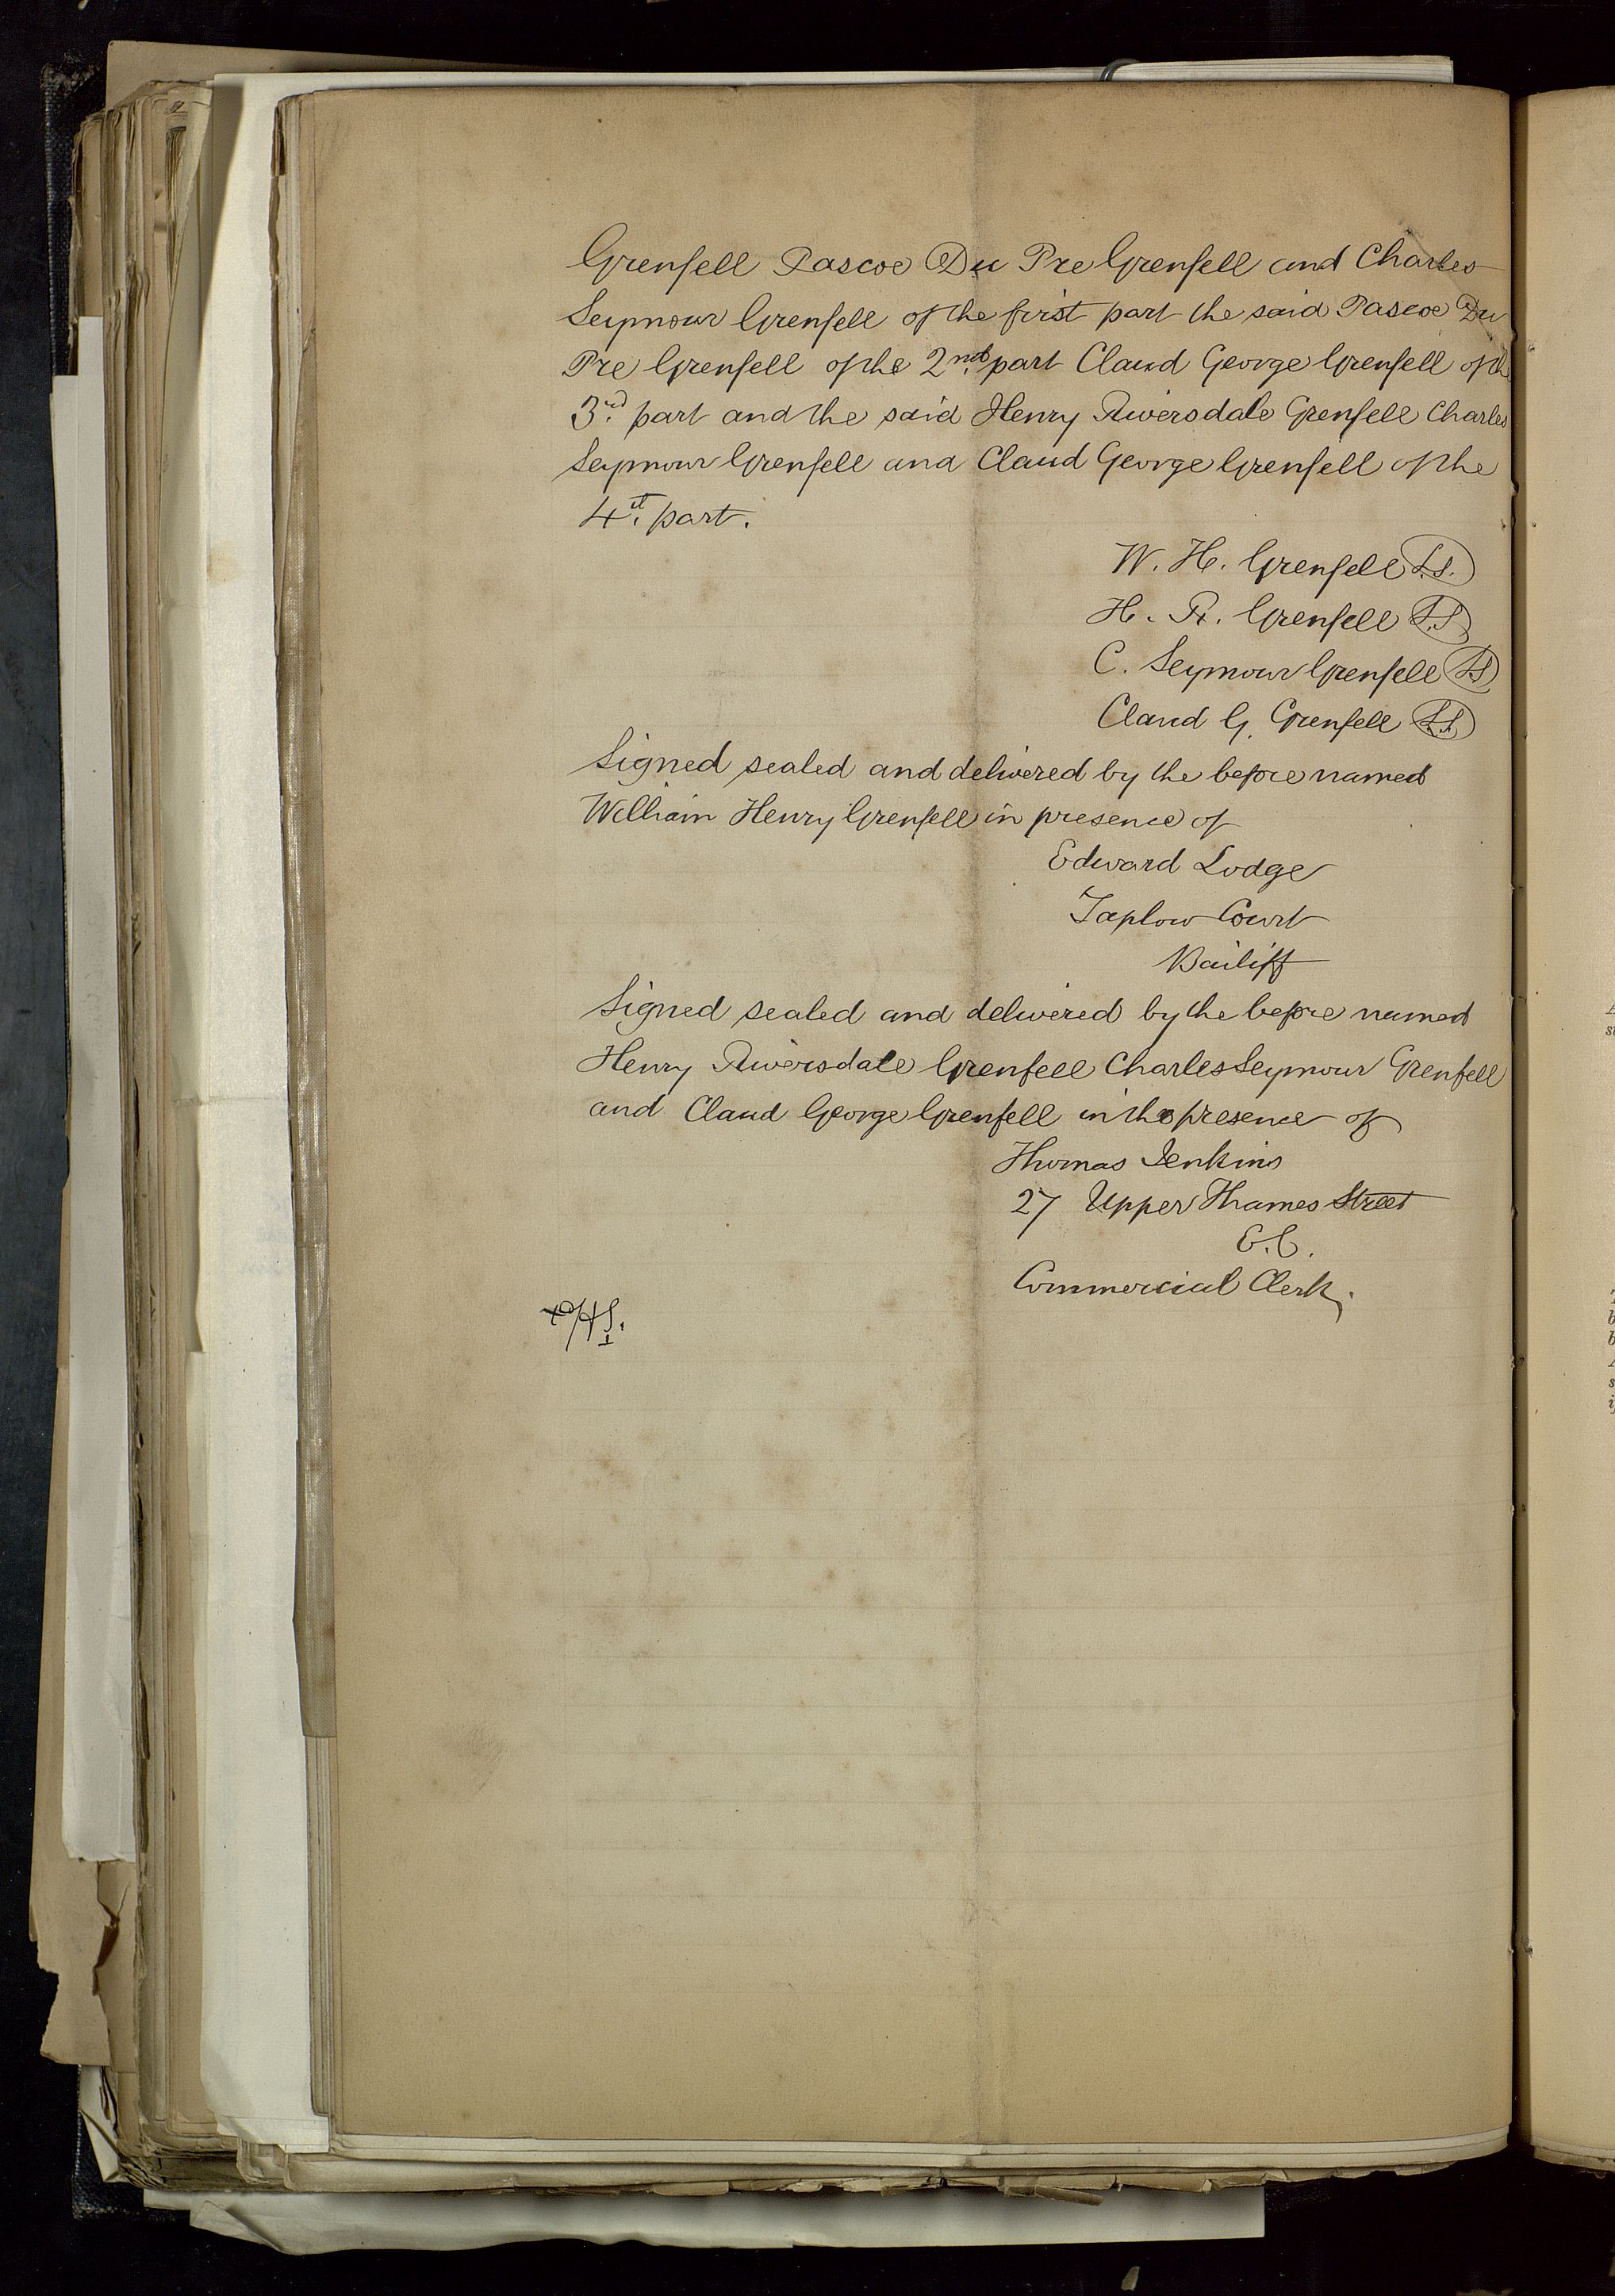 Grenfell Pascoe Du Pre Grenfell and Charles
Seymour Grenfell of the first part the said Pascoe Du
Pre Grenfell of the 2nd. part Claud George Grenfell of the
3rd. part and the said Henry Riversdale Grenfell Charles
Seymour Grenfell and Claud George Grenfell of the
4th. part.
W. H. Grenfell L.S.
H. R. Grenfell L.S
C. Seymour Grenfell LS
Claud G. Grenfell L.S.
Signed sealed and delivered by the before named
William Henry Grenfell in presence of
Edward Lodge
Taplow Court
Bailiff
Signed sealed and delivered by the before named
Henry Riversdale Grenfell Charles Seymour Grenfell
and Claud George Grenfell in the presence of
Thomas Jenkins
27 Upper Thames Street
E.C.
Commercial Clerk.